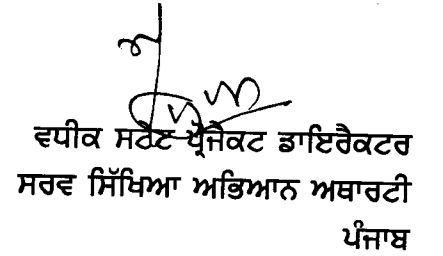 ਵਧੀਕ ਸਟੇਟ ਪ੍ਰੋਜੈਕਟ ਡਾਇਰੈਕਟਰ
ਸਰਵ ਸਿੱਖਿਆ ਅਭਿਆਨ ਅਥਾਰਟੀ
ਪੰਜਾਬ